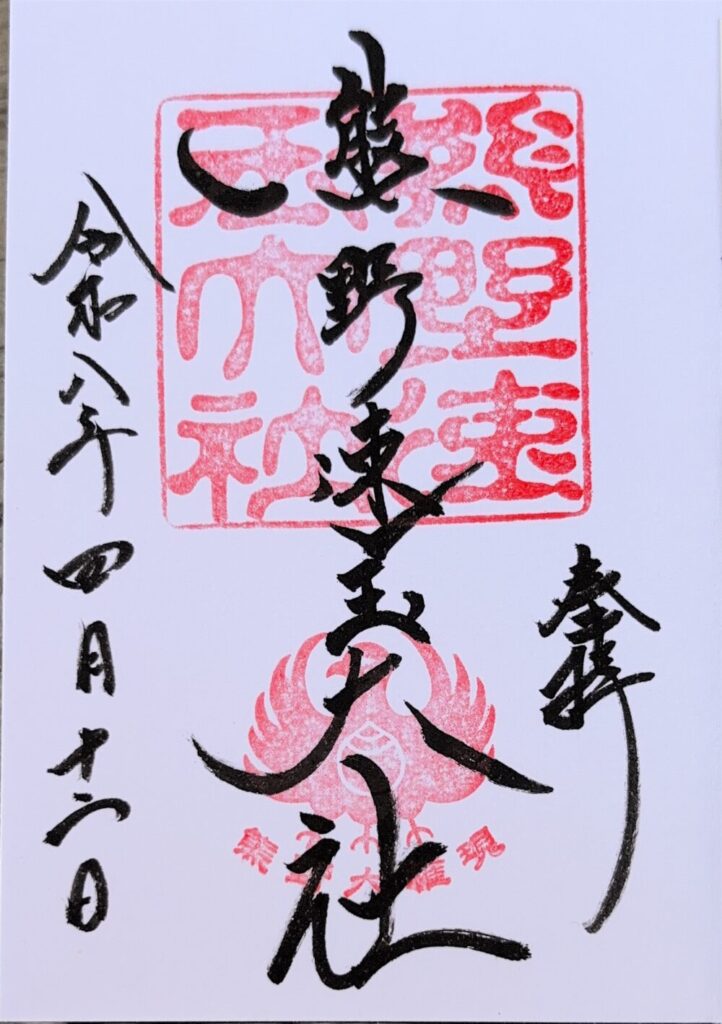 奉拝
熊野速玉大社
令和八年四月十二日
熊野速
玉大社
熊野大權現